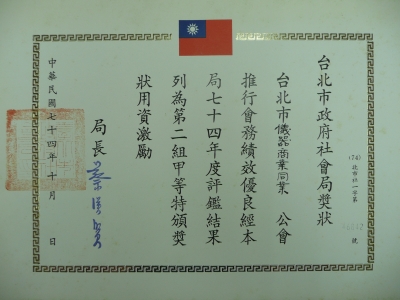 台北市政府社會局獎狀
(74)北市社一字第
號
台北市儀器商業同業公會
推行會務績效優良經本
局七十四年度評鑑結果
列為第二組甲等特頒獎
狀用資激勵
局長
中華民國七十四年十月 日